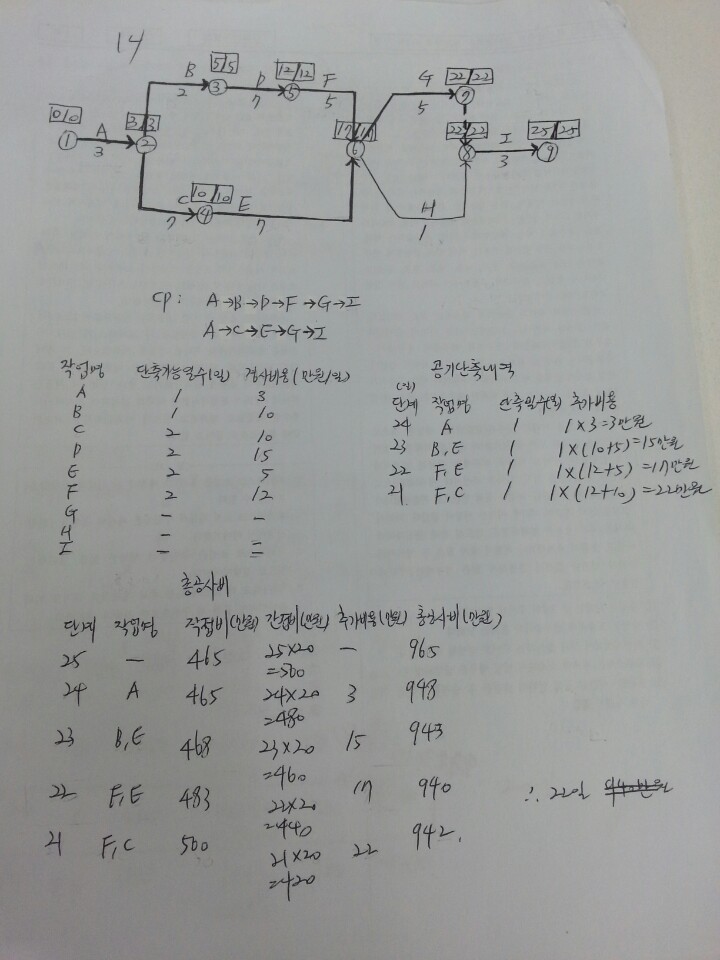 14
B 5 5 D 12 12 F G 22 22
2 3 7 5 5 5 7
0 0 A 3 3 17 17 22 22 I 25 25
1 3 2 6 8 3 9
C 10 10 E H
7 4 7 1
CP : A→B→D→F→G→I
A→C→E→G→I
작업명 단축가능일수(일) 경사비용(만원/일)
A 1 3
B 1 10
C 2 10
D 2 15
E 2 5
F 2 12
G - -
H - -
I - -
공기단축내역
(일)
단계 작업명 단축일수(일) 추가비용
24 A 1 1×3=3만원
23 B,E 1 1×(10+5)=15만원
22 F,E 1 1×(12+5)=17만원
21 F,C 1 1×(12+10)=22만원
총공사비
단계 작업명 직접비(만원) 간접비(만원) 추가비용(만원) 총공사비(만원)
25 - 465 25×20 - 965
=500
24 A 465 24×20 3 948
=480
23 B,E 468 23×20 15 943
=460
22 F,E 483 22×20 17 940
=440
21 F,C 500 21×20 22 942.
=420
∴ 22일